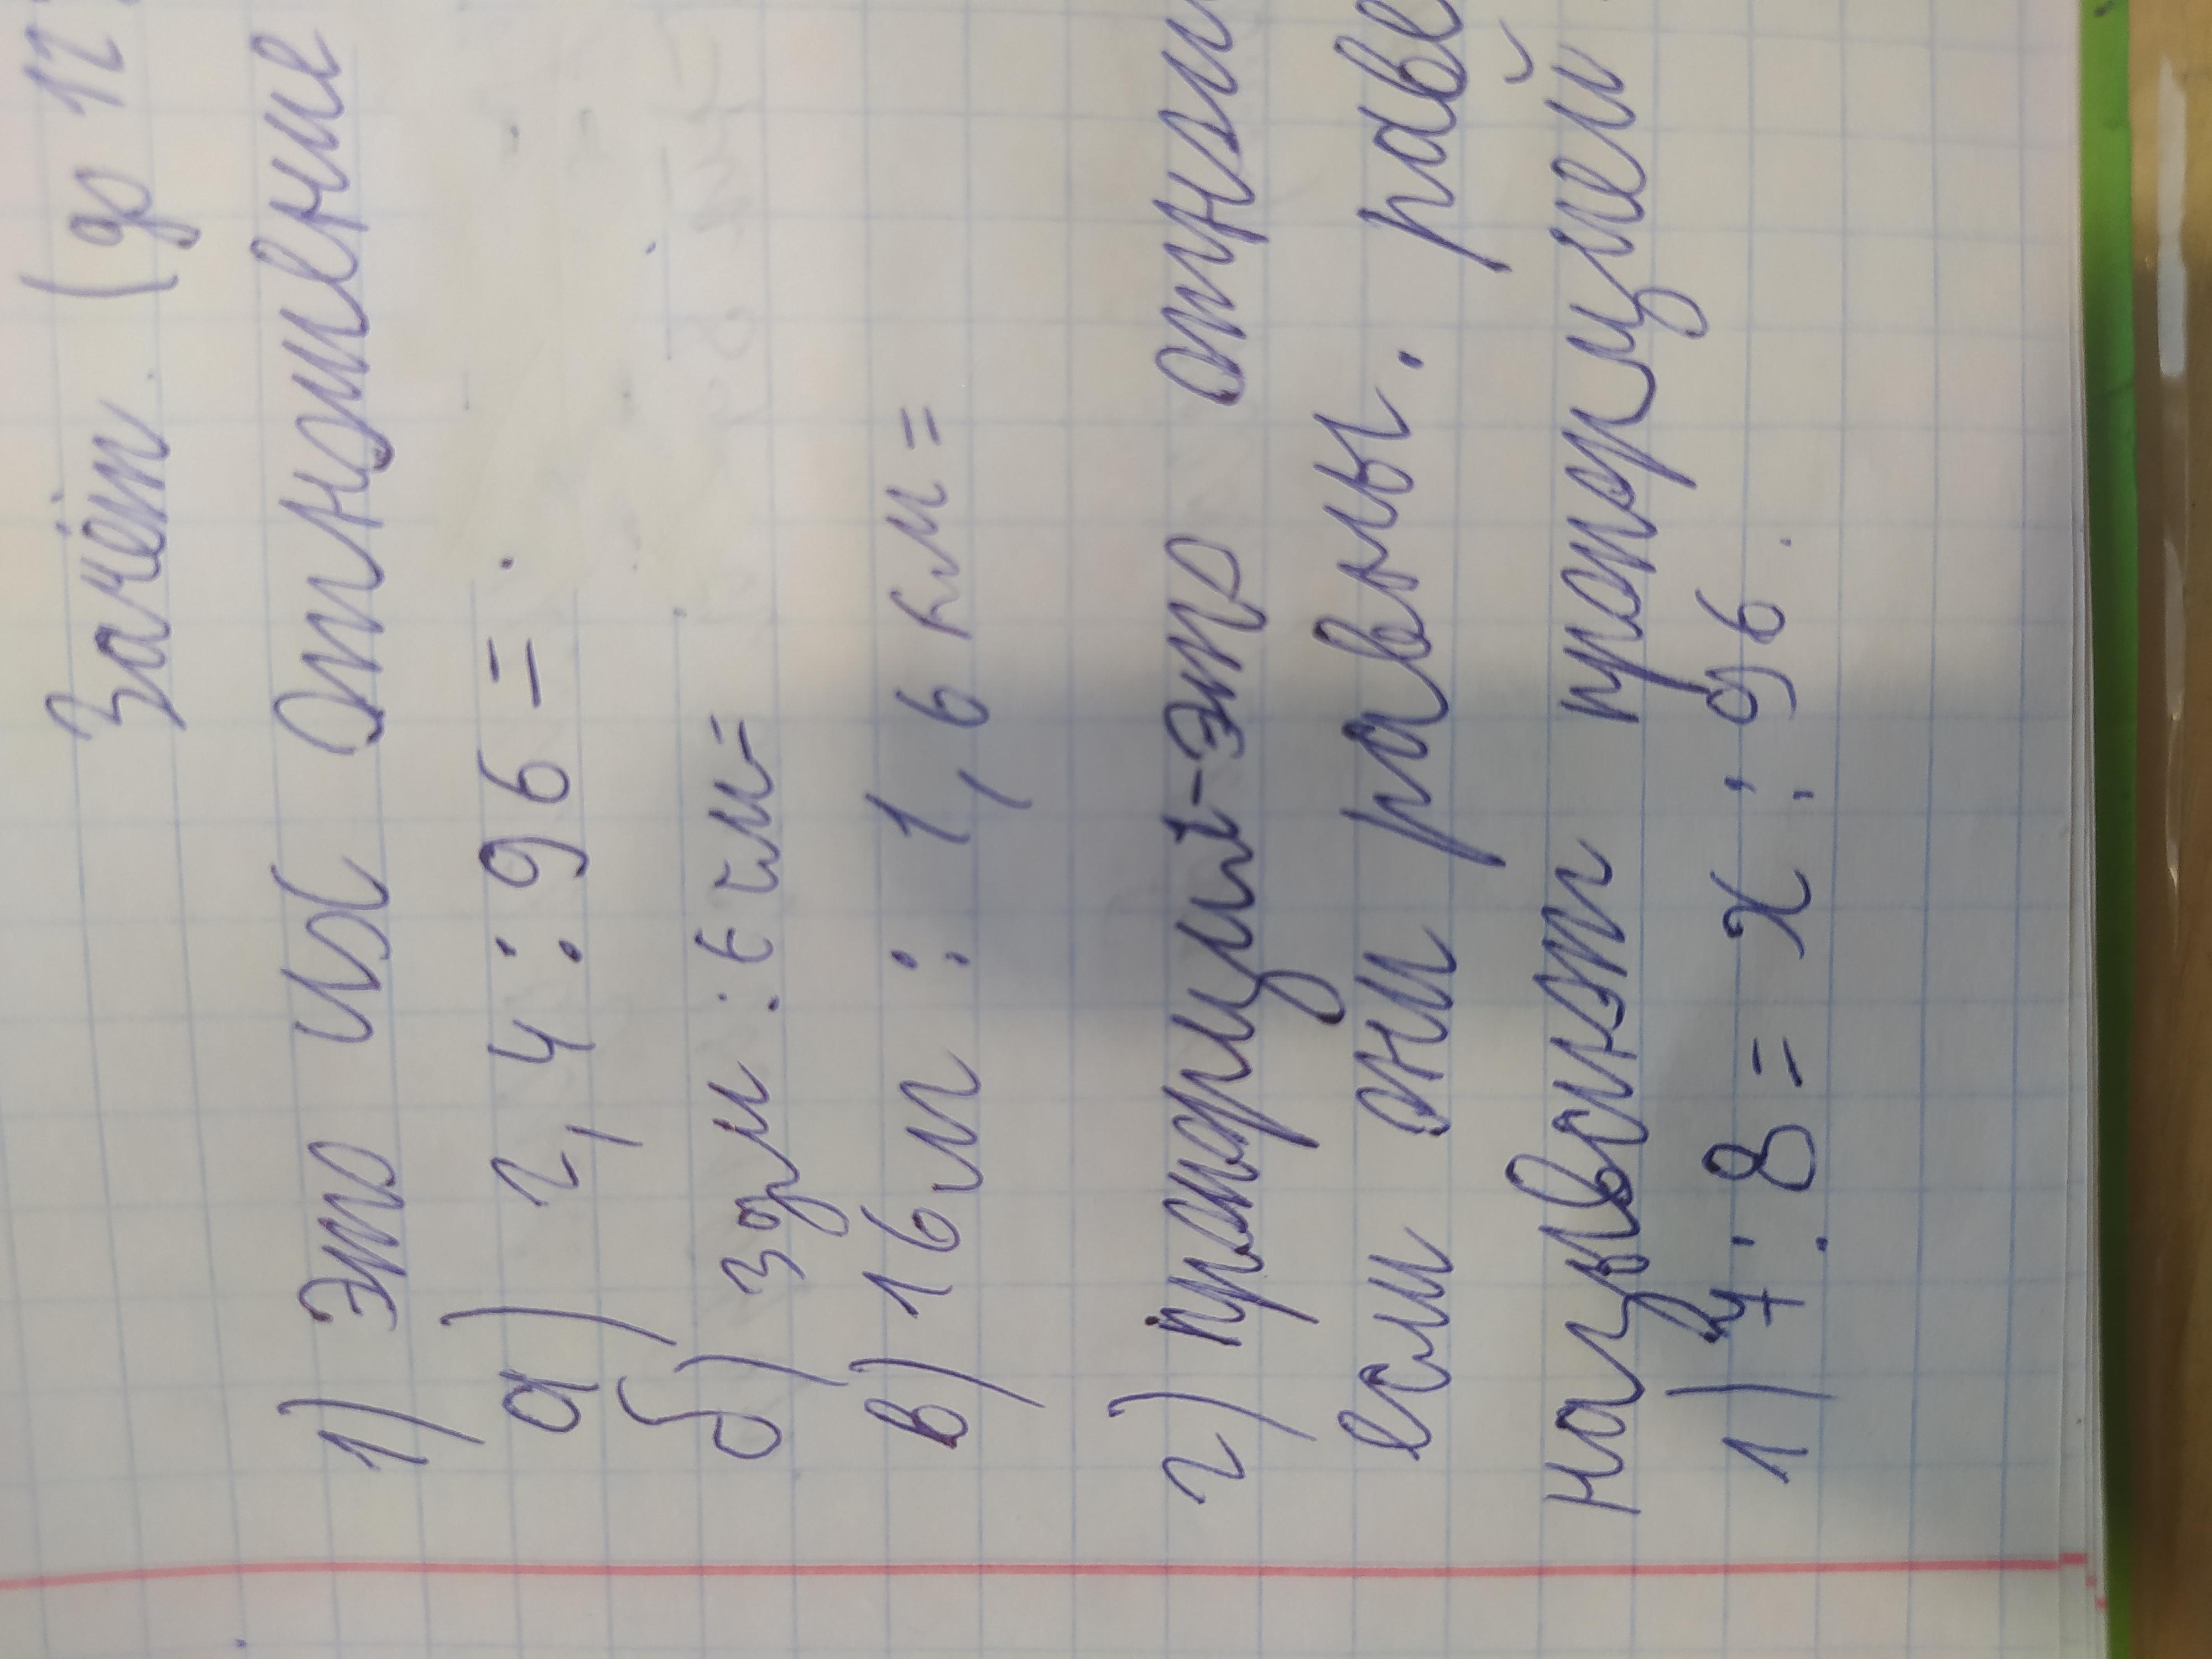 Зачёт (до 12
1) Это их Отношение
а) 2,4 : 96 =
б) 3дм : 6 см =
в) 16м : 1,6 км =
2) пропорции-это отнош
если они равны. раве
называют пропорцией
1) 4 : 8 = x : 96.